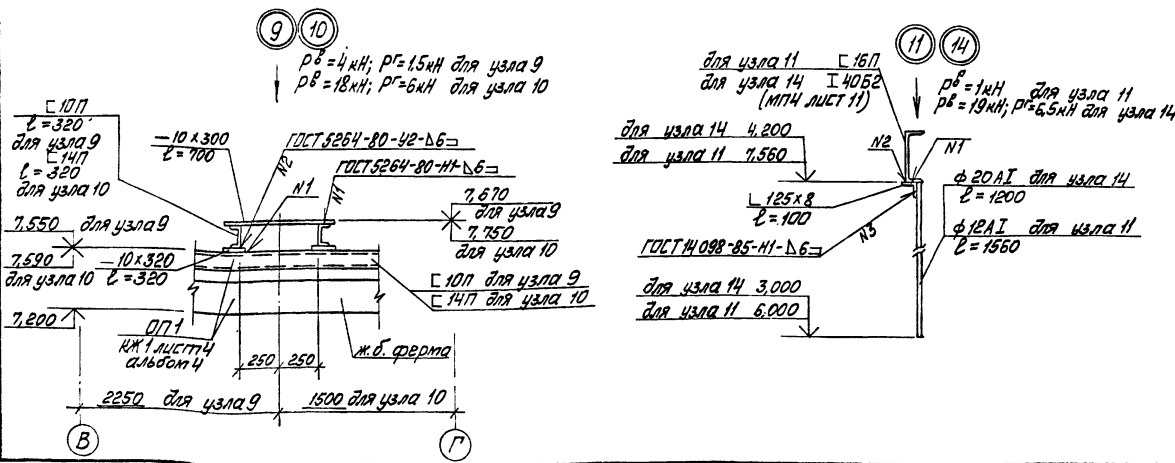 9 10
Рв=4кН; Рг=1.5кН для узла 9
Рв=18кН; Рг=6кН для узла 10
[10П
ℓ=320
для узла 9
[14П
ℓ=320
для узла 10
—10×300
ℓ=700
ГОСТ 5264-80-У2-⊿6
N2
ГОСТ 5264-80-Н1-⊿6
N1
N1
7,550 для узла 9
7,590
для узла 10
—10×320
ℓ=320
7,670
для узла 9
7,750
для узла 10
[10П для узла 9
[14П для узла 10
7,200
ОП1
КЖ1 лист 4
альбом 4
250 250
ж.б. ферма
2250 для узла 9
1500 для узла 10
В
Г
11 14
для узла 11 [16П
для узла 14 I 40Б2
(МП4 ЛИСТ 11)
Рв=1кН для узла 11
Рв=19кН; Рг=6,5кН для узла 14
для узла 14 4,200
для узла 11 7,560
N2
N1
∟125×8
ℓ=100
N3
ГОСТ 14098-85-Н1-⊿6
ф20АI для узла 14
ℓ=1200
ф12АI для узла 11
ℓ=1560
для узла 14 3,000
для узла 11 6,000